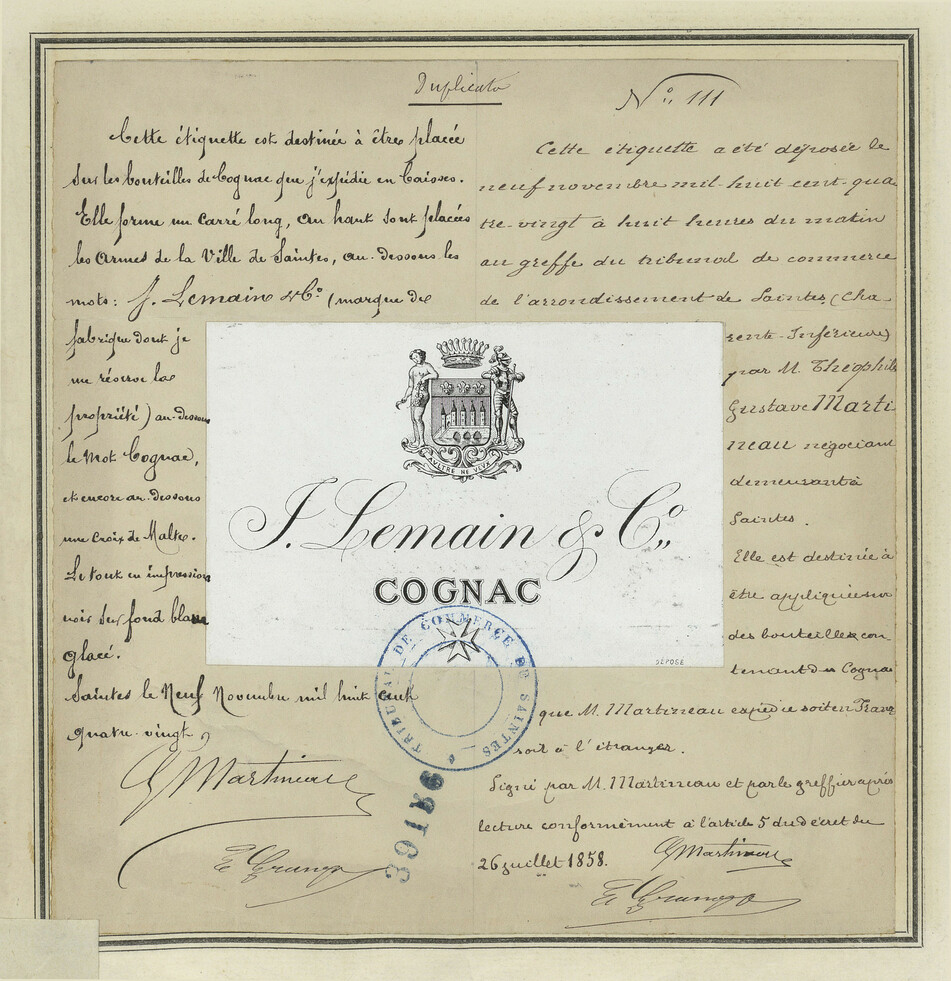 Duplicata
N° 111
Cette étiquette est destinée à être placée
sur les bouteilles de Cognac que j'expédie en Caisses.
Elle forme un carré long, au haut sont placées
les Armes de la Ville de Saintes, au-dessous les
mots: J. Lemain & Co (marque de
fabrique dont je
me réserve la
propriété) au-dessous
le Mot Cognac,
et encore au-dessous
une Croix de Malte.
Le tout en impression
noir sur fond blanc
glacé.
Saintes le Neuf Novembre mil huit cent
quatre-vingt
G Martineau
Cette étiquette a été déposée le
neuf novembre mil-huit cent-qua
tre-vingt à huit heures du matin
au greffe du tribunal de commerce
de l'arrondissement de Saintes (Cha
rente-Inférieure)
par M. Théophile
Gustave Marti
neau négociant
demeurant à
Saintes.
Elle est destinée à
être appliquée sur
des bouteilles con
tenant du Cognac
que M. Martineau expédie soit en France
soit à l'étranger.
Signé par M. Martineau et par le greffier après
lecture conformément à l'article 5 du décret du
26 juillet 1858.
G Martineau
J. Lemain & Co,,
COGNAC
DÉPOSÉ
TRIBUNAL DE COMMERCE DE SAINTES